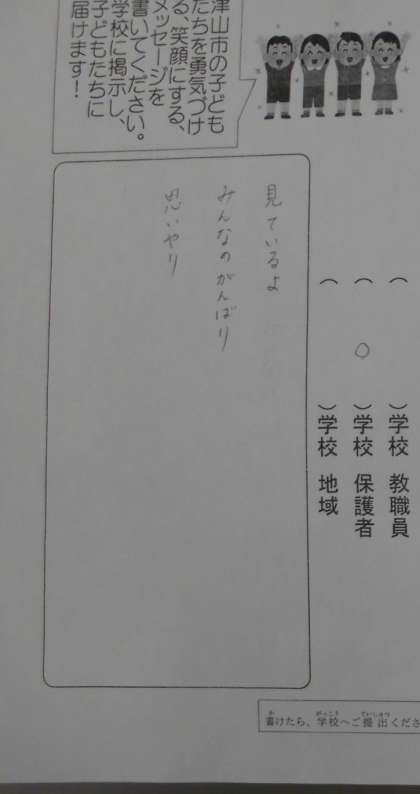 （　　　　）学校　教職員
（　　○　　）学校　保護者
（　　　　）学校　地域
津山市の子ども
たちを勇気づけ
る、笑顔にする、
メッセージを
書いてください。
学校に掲示し、
子どもたちに
届けます！
見ているよ
みんなのがんばり
思いやり
書けたら、学校へご提出くださ